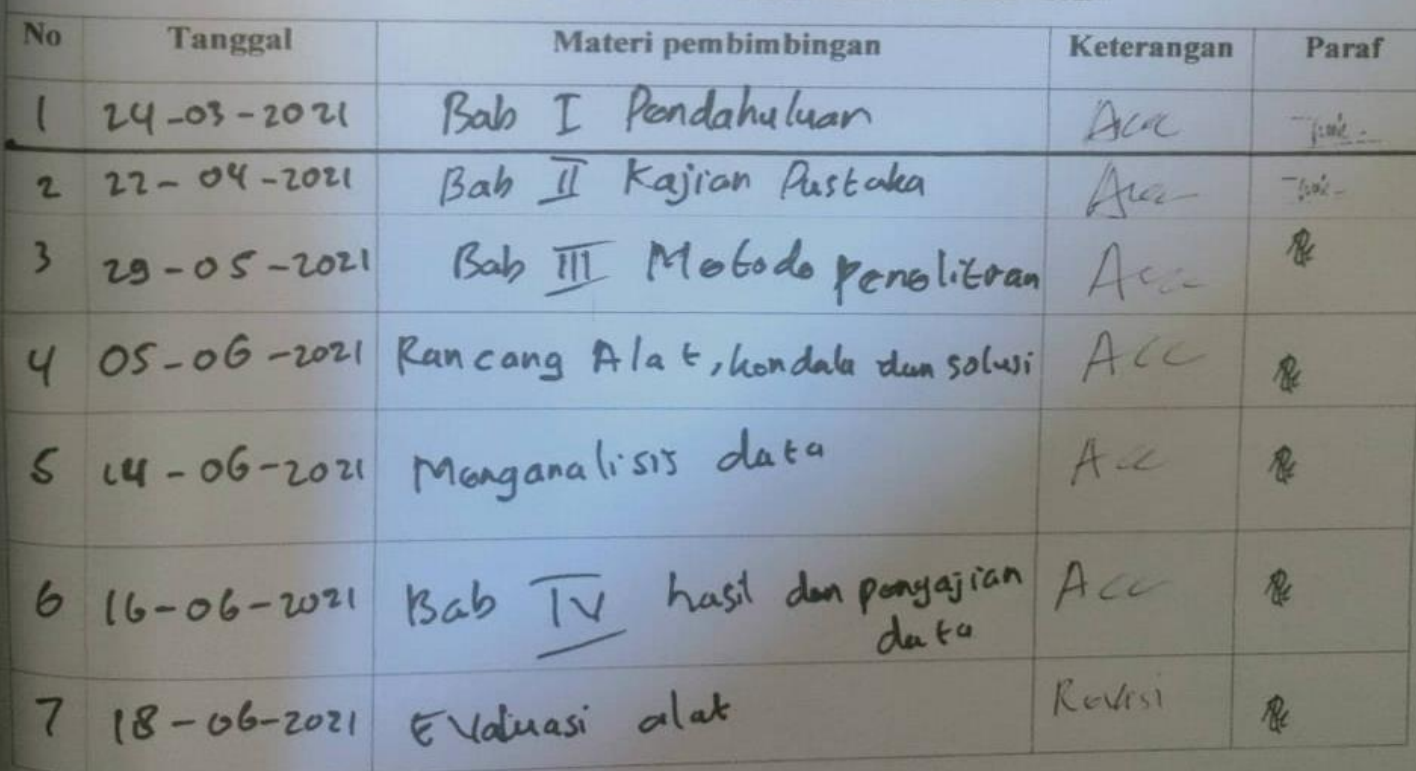 No Tanggal Materi pembimbingan Keterangan Paraf
1 24-03-2021 Bab I Pendahuluan Acc
2 22-04-2021 Bab II Kajian Pustaka Acc
3 29-05-2021 Bab III Metode penelitian Acc
4 05-06-2021 Rancang Alat, kendala dan solusi Acc
5 14-06-2021 Menganalisis data Acc
6 16-06-2021 Bab IV hasil dan penyajian Acc
data
7 18-06-2021 Evaluasi alat Revisi